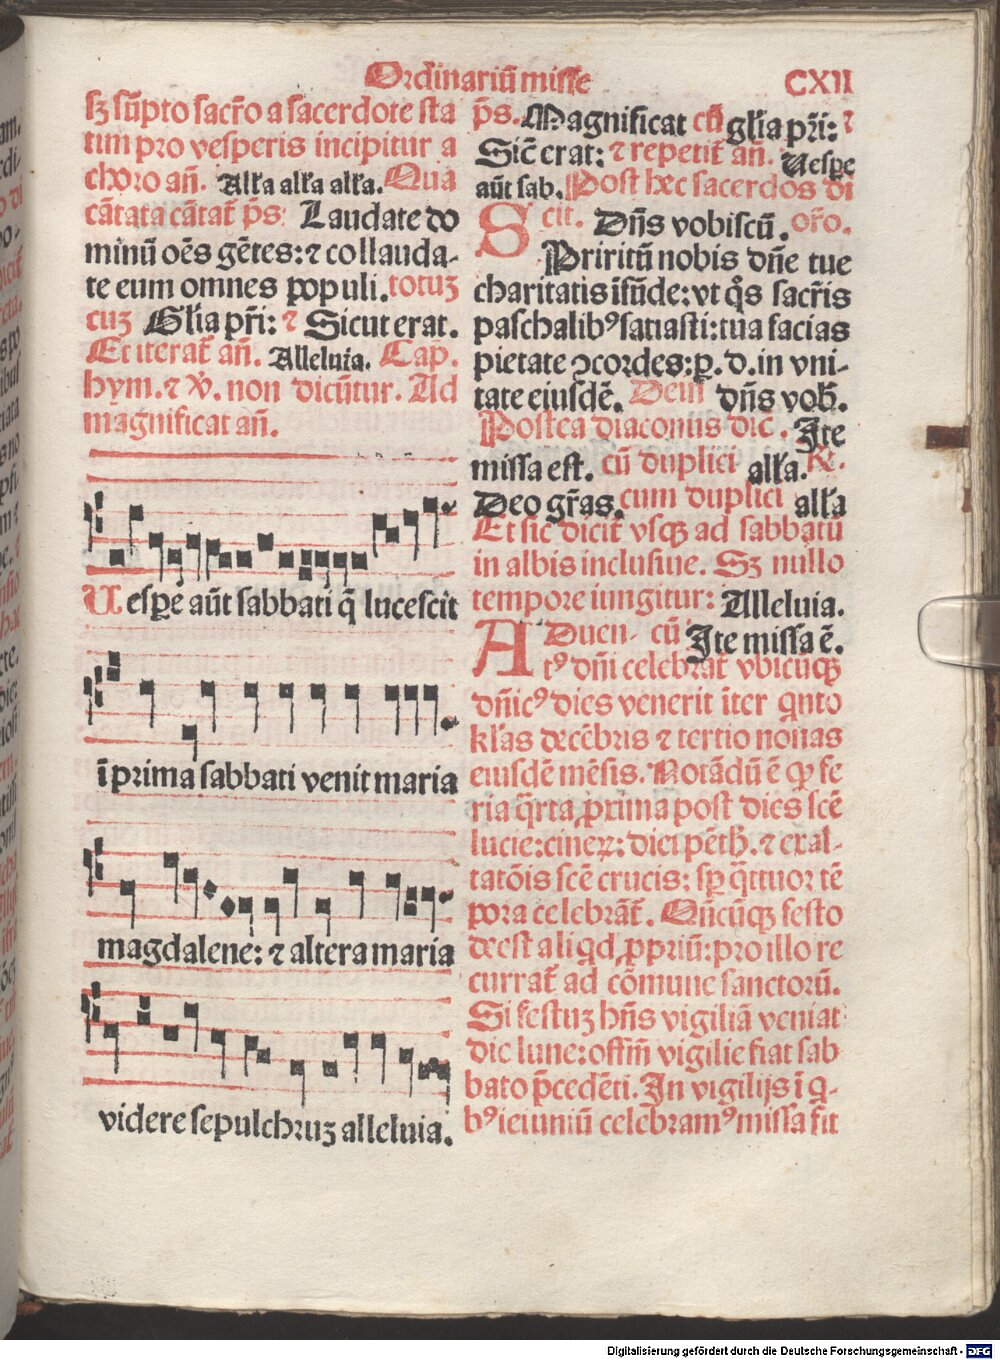 Ordinariū misse
CXII
sʒ sūpto sacr̄o a sacerdote sta
tim pro vesperis incipitur a
choro an̄. Alľa alľa alľa. Qua
cātata cātat̄ p̄s. Laudate do
minū oēs gētes: ⁊ collauda-
te eum omnes populi. totuʒ
cuʒ Gľia pr̄i: ⁊ Sicut erat.
Et iterat̄ an̄. Alleluia. Cap̄.
hym. ⁊ ꝟ. non dicūtur. Ad
magnificat an̄.
Uesꝑe aūt sabbati q̄ lucescit
ī prima sabbati venit maria
magdalene: ⁊ altera maria
videre sepulchruʒ alleluia.
p̄s. Magnificat cū gľia pr̄i: ⁊
Sic̄ erat: ⁊ repetit̄ an̄. Uesꝑe
aūt sab. Post hec sacerdos di
cit. Dn̄s vobiscū. or̄o.
SPiritū nobis dn̄e tue
charitatis īfūde: vt q̄s sacr̄is
paschalibꝰ satiasti: tua facias
pietate ɔcordes: ꝑ. d. in vni-
tate eiusdē. Dein̄ dn̄s vob̄.
Postea diaconus dic̄. Ite
missa est. cū duplici alľa. R̄.
Deo gr̄as. cum duplici alľa
Et sic dicit̄ vsqꝫ ad sabbatū
in albis inclusiue. Sʒ nullo
tempore iungitur: Alleluia.
ADuen- cū Ite missa ē.
tꝰ dn̄i celebrat̄ vbicūqꝫ
dn̄icꝰ dies venerit īter qͥnto
kľas decēbris ⁊ tertio nonas
eiusdē mēsis. Notādū ē ꝙ fe
ria q̄rta prima post dies scē
lucie: cinerꝫ: dici pēth̄. ⁊ exal-
tatōis scē crucis: sꝑ q̄ttuor tē
pora celebrāt̄. Qn̄cūqꝫ festo
deest aliqd ꝓpriū: pro illo re
currat̄ ad cōmune sanctorū.
Si festuʒ hn̄s vigiliā veniat
die lune: offm̄ vigilie fiat sab
bato p̄cedēti. In vigilijs ī q-
bꝰ ieiuniū celebramꝰ missa fit
Digitalisierung gefördert durch die Deutsche Forschungsgemeinschaft - DFG